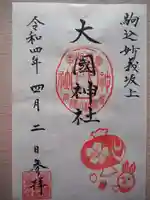 駒込妙義坂上
大國神社
令和四年 四月 二日参拝